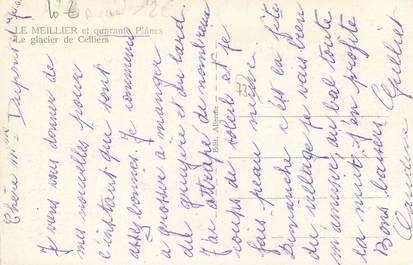 LE MEILLIER et quarante Plânes
Le glacier de Celliers
Edit. Allemoz
Chère Mme Dupont
Je viens vous donner de
mes nouvelles pour
l'instant que sont
assez bonnes. Je commence
a grossir a manger
du gruyère et du lard.
J'ai attrapé de nombreux
coups de soleil et je
fais peau neuve
Dimanche c'est la fête
du village je vais bien
m'amuser, au bal toute
la nuit. J'en profite
Bons baisers
Juliet